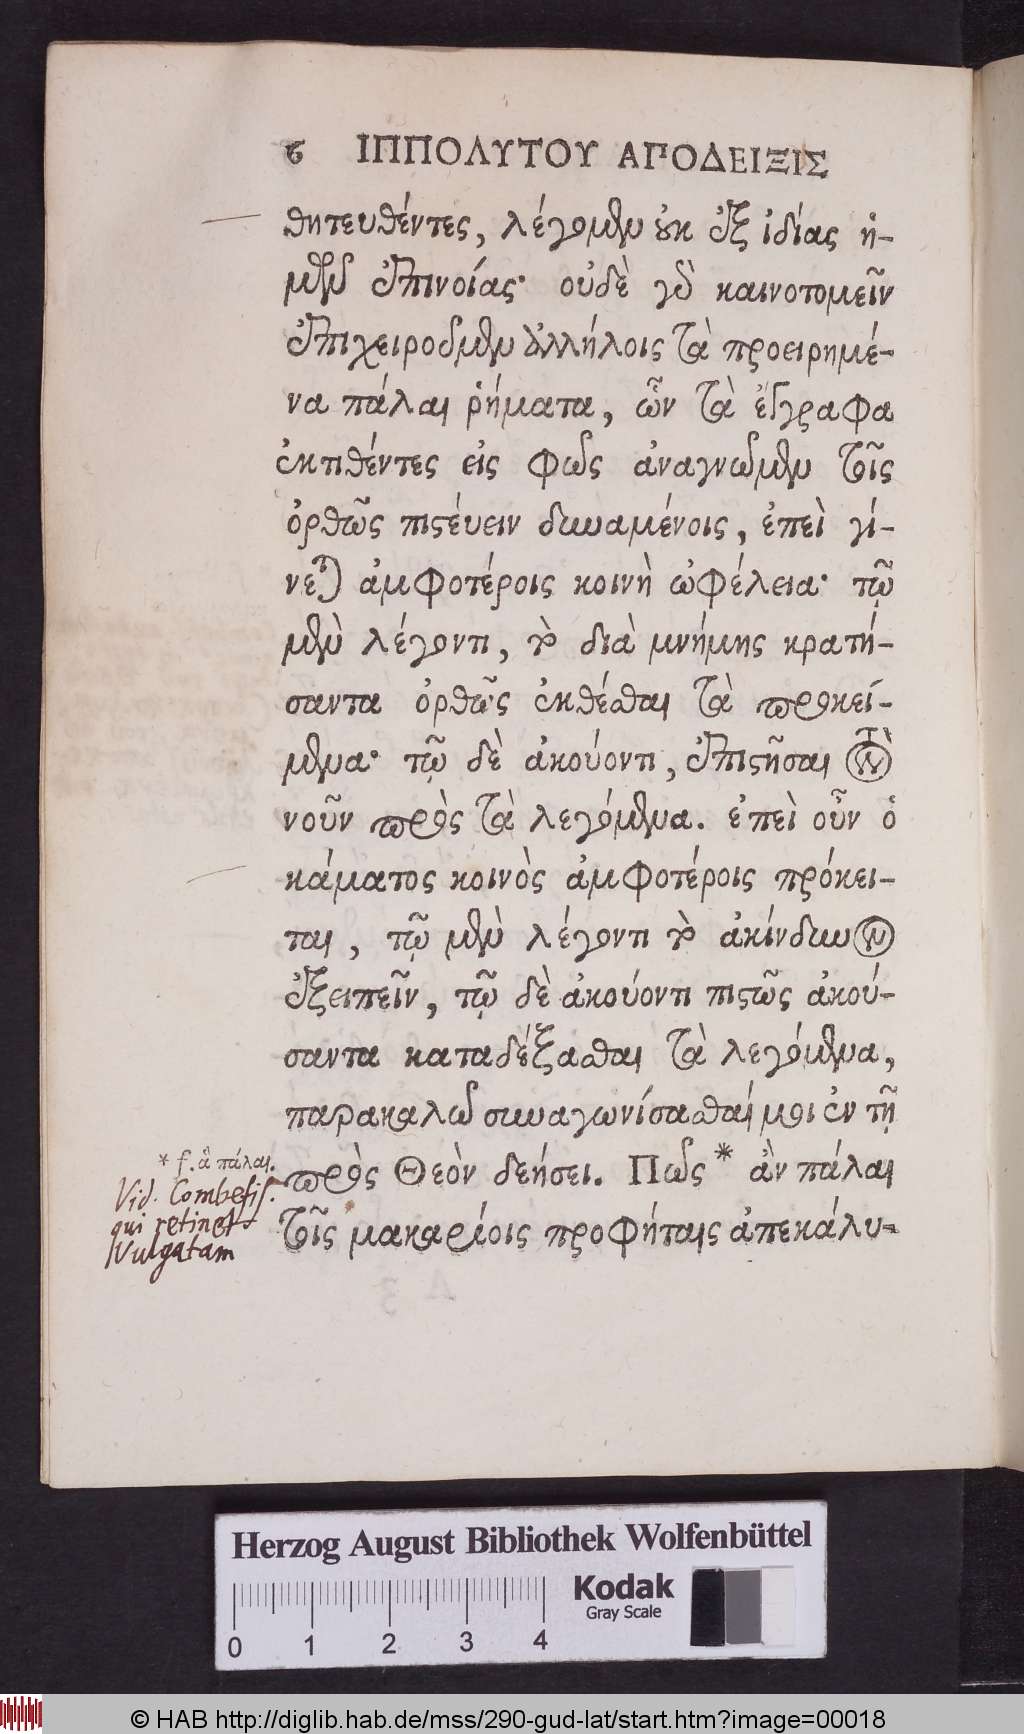 ϛ ΙΠΠΟΛΥΤΟΥ ΑΠΟΔΕΙΞΙΣ
θητευθέντες, λέγομεν οὐκ ἐξ ἰδίας ἡ-
μῶν ἐπινοίας· οὐδὲ γὰρ καινοτομεῖν
ἐπιχειροῦμεν ἀλλήλοις τὰ προειρημέ-
να πάλαι ῥήματα, ὧν τὰ ἔγγραφα
ἐκτιθέντες εἰς φῶς ἀναγνῶμεν τοῖς
ὀρθῶς πιστέυειν δυναμένοις, ἐπεὶ γί-
νεται ἀμφοτέροις κοινὴ ὠφέλεια· τῷ
μὲν λέγοντι, τὸ διὰ μνήμης κρατή-
σαντα ὀρθῶς ἐκθέσθαι τὰ προκεί-
μενα· τῷ δὲ ἀκούοντι, ἐπιστῆσαι τὸν
νοῦν πρὸς τὰ λεγόμενα. ἐπεὶ οὖν ὁ
κάματος κοινὸς ἀμφοτέροις πρόκει-
ται, τῷ μὲν λέγοντι τὸ ἀκίνδυνον
ἐξειπεῖν, τῷ δὲ ἀκούοντι πιστῶς ἀκού-
σαντα καταδέξασθαι τὰ λεγόμενα,
παρακαλῶ συναγωνίσασθαί μοι ἐν τῇ
πρὸς Θεὸν δεήσει. Πῶς * ἂν πάλαι
τοῖς μακαρίοις προφήταις ἀπεκάλυ-
* f. ἃ πάλαι.
Vid. Combefis.
qui retinet
Vulgatam
Herzog August Bibliothek Wolfenbüttel
Kodak
Gray Scale
0 1 2 3 4
© HAB http://diglib.hab.de/mss/290-gud-lat/start.htm?image=00018